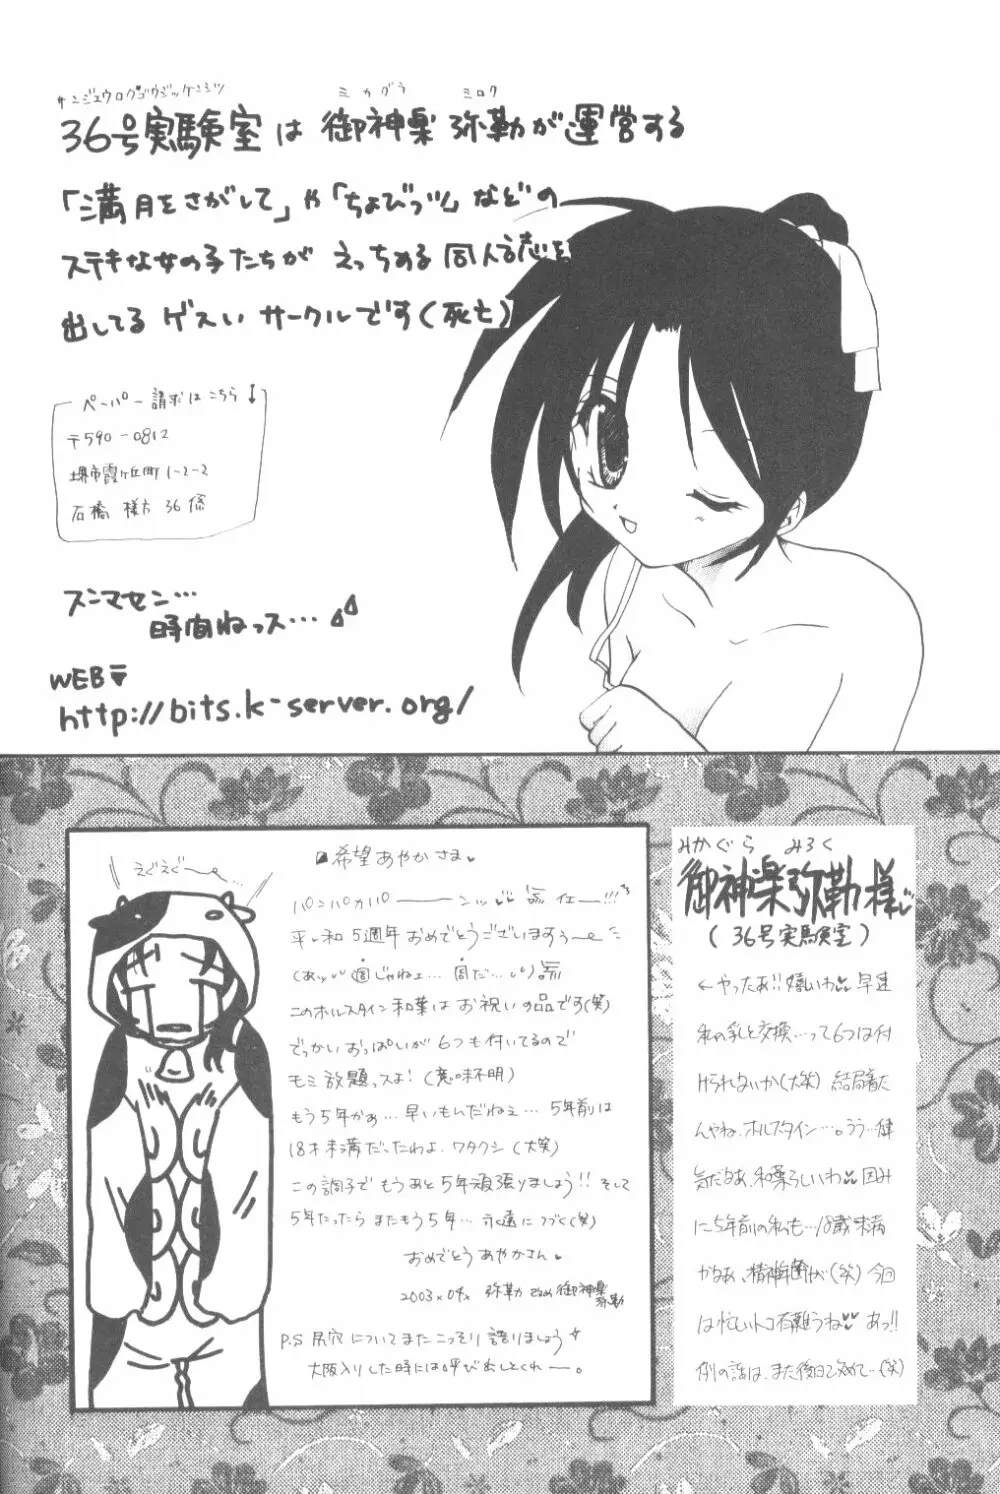 サンジュウロクゴウジッケンシツ ミカグラ ミロク
36号実験室は 御神楽 弥勒が運営する
「満月をさがして」や「ちょびっツ」などの
ステキな女の子たちが えっちめる同人誌を
出してる ゲスい サークルです(死亡)
ペーパー請求はこちら↓
〒590-0812
堺市霞ヶ丘町1-2-2
石橋 様方 36係
スンマセン…
時間ねっス…
WEB
http://bits.k-server.org/
えぐえぐ〜…
希望あやかさま
パンパカパーーーンッ
平和5週年おめでとうございますぅ〜
(あッ 週じゃねェ…周だ…)
このホルスタイン和葉はお祝いの品です(笑)
でっかいおっぱいが6つも付いてるので
モミ放題っスよ!(意味不明)
もう5年かぁ…早いもんだねェ…5年前は
18才未満だったわよ、ワタクシ(大笑)
この調子でもうあと5年頑張りましょう!!そして
5年たったらまたもう5年…永遠につづく(笑)
おめでとうあやかさん
2003×04× 弥勒 御神楽弥勒
P.S 尻穴についてまたこっそり語りましょう
大阪入りした時には呼び出しとくれー。
みかぐら みろく
御神楽弥勒様
(36号実験室)
←やったぁ!!嬉しいわ 早速
私の乳と交換…って6つは付
けられないか(大笑)結局着た
んやね、ホルスタイン…。うう…健
気だなあ、和葉らしいわ 因み
に5年前の私も…18歳未満
かなあ、精神年齢が(笑)今回
は忙しいトコ有難うね あっ!!
例の話は、また後日改めて…(笑)